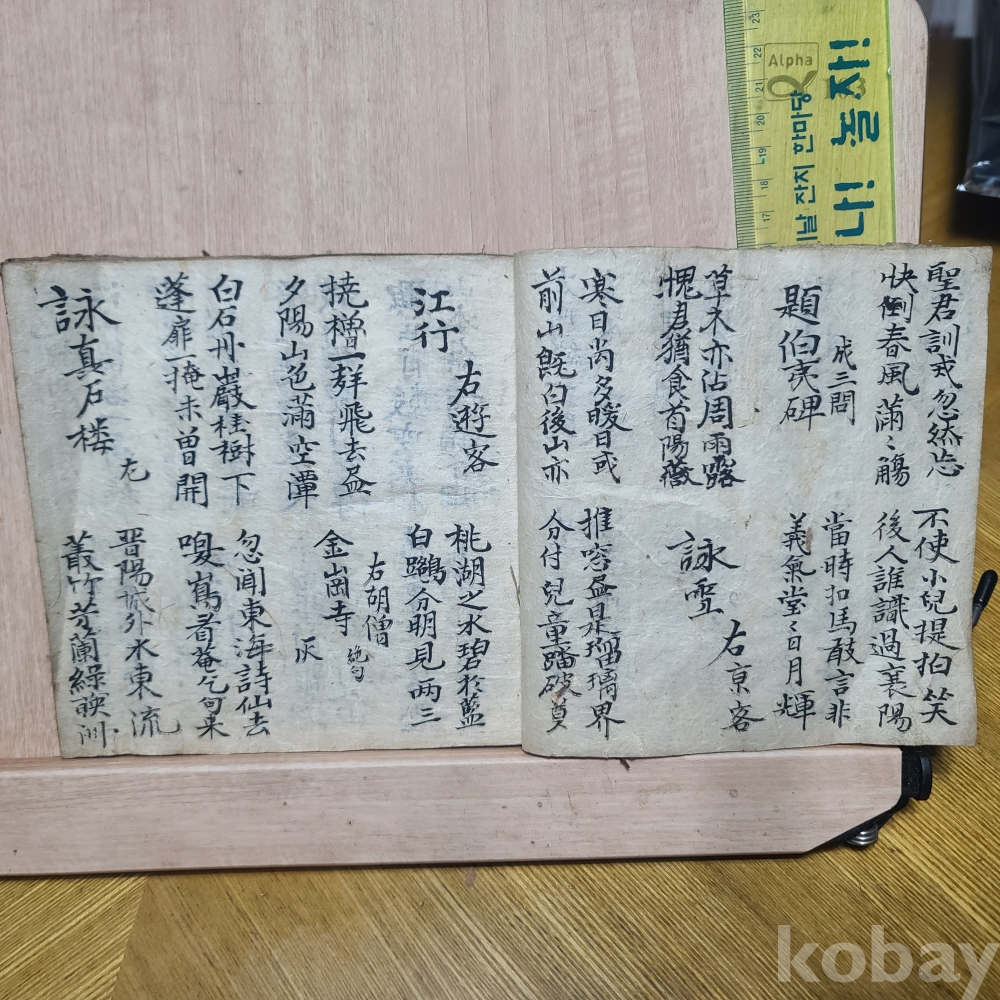 聖君訓戒忽然忘
不使小兒提拍笑
快倒春風滿〻觴
後人誰識過襄陽
成三問
題伯夷碑
當時扣馬敢言非
義氣堂〻日月輝
草木亦沾周雨露
愧君猶食首陽薇
右京客
詠雪
寒日尚多暖日或
推窓盡是瑠璃界
前山旣白後山亦
分付兒童踏破莫
右遊客
江行
桃湖之水碧於藍
白鷗分明見两三
撓櫓一群飛去盡
夕陽山色滿空潭
右胡僧
金崗寺
絶句
灰
白石丹巖桂樹下
蓬扉一掩未曾開
忽聞東海詩仙去
看菴乞句来
詠真石楼
尤
晋陽城外水東流
叢竹芳蘭綠暎洲
Alpha
날 잔치 한마당
나! 놀자!
17 18 19 20 21 22 23
kobay